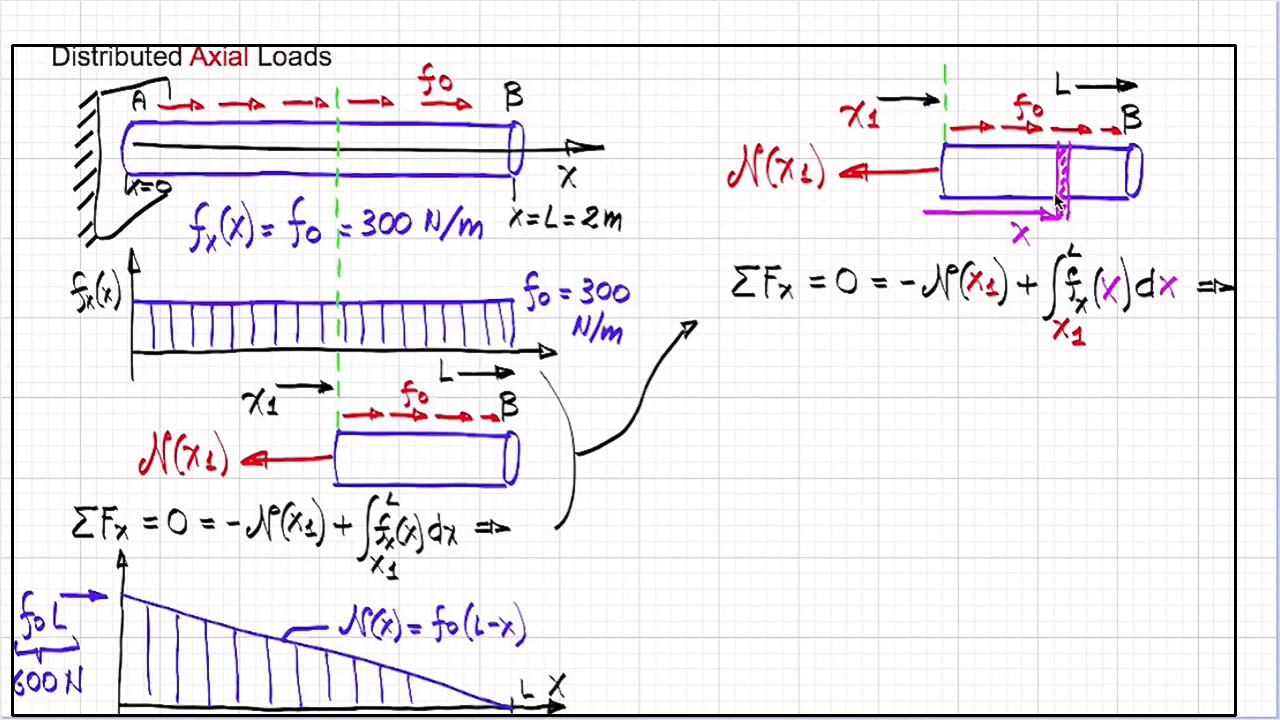 Distributed Axial Loads
A f0 B
x=0 x
fx(x) = f0 = 300 N/m x=L=2m
fx(x) f0 = 300
N/m
x1 L
f0 B
N(x1)
ΣFx = 0 = -N(x1) + ∫x1^L fx(x)dx ⇒
f0L
600N
N(x) = f0(L-x)
L x
L
x1 f0 B
N(x1)
x
ΣFx = 0 = -N(x1) + ∫x1^L fx(x)dx ⇒